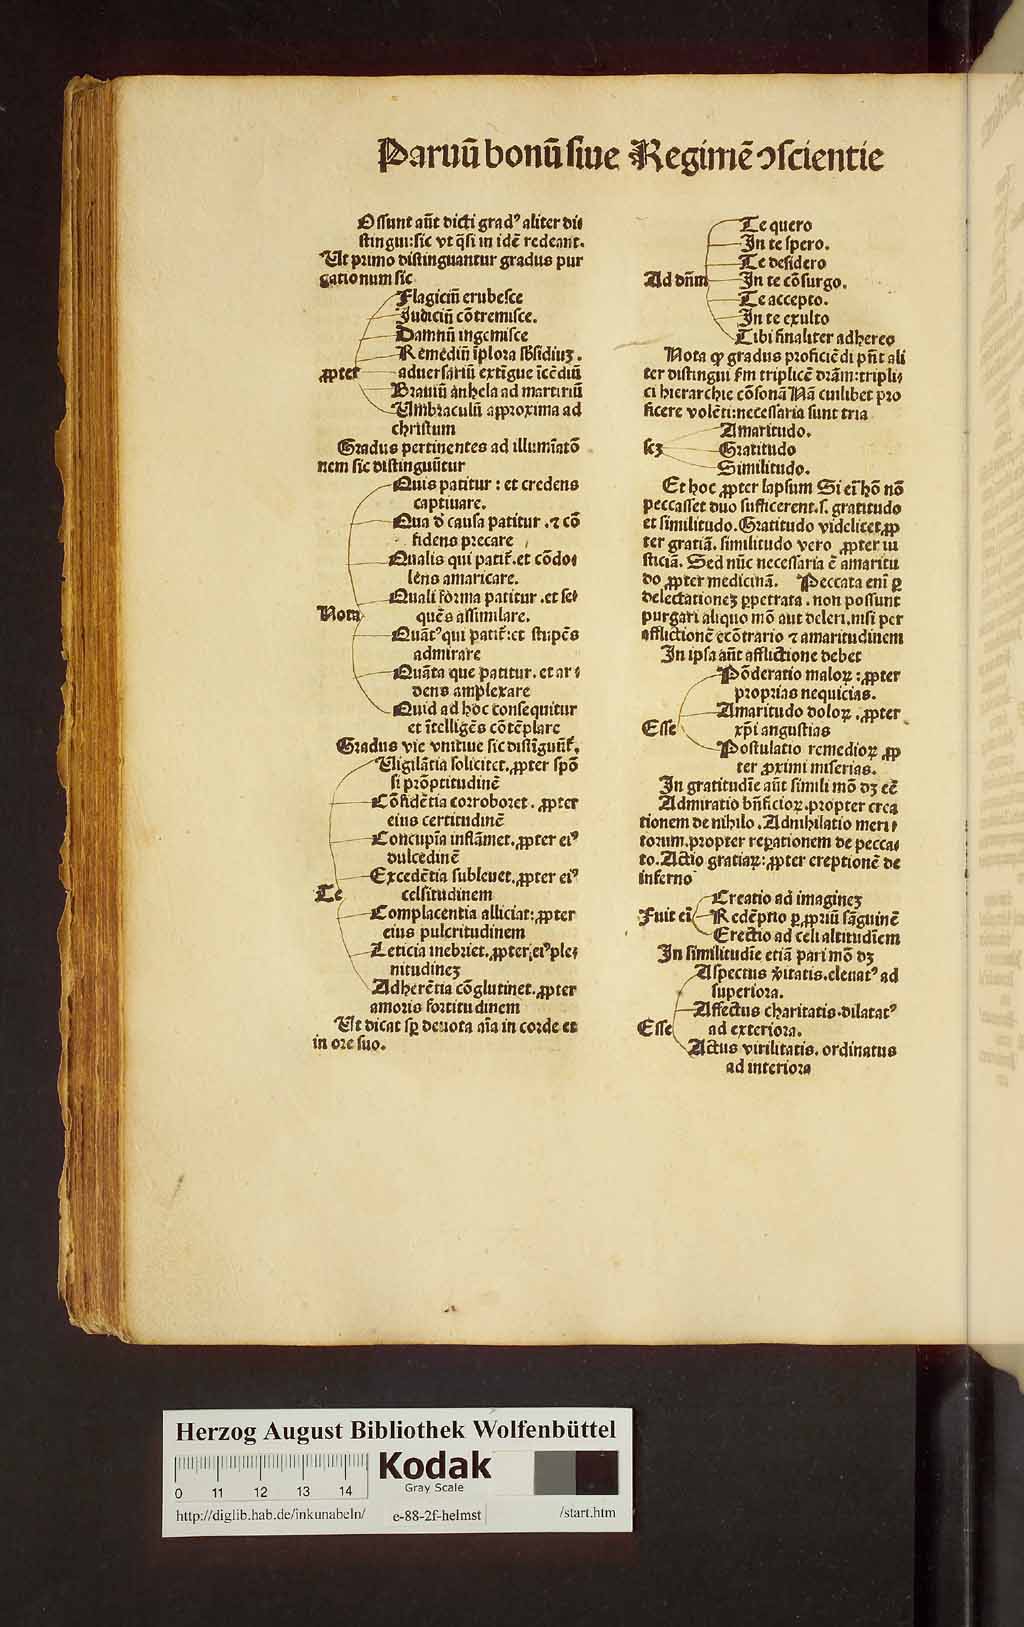 Paruū bonū siue Regimē ↄscientie
Ossunt aūt dicti gradꝰ aliter di-
stingui: sic vt q̄si in idē redeant.
Ut primo distinguantur gradus pur
gationum sic
Flagiciū erubesce
Judiciū cōtremisce.
Damnū ingemisce
Remediū īplora sb̄sidiuꝫ.
ꝓpter
aduersariū extīgue īcēdiū
Brauiū anhela ad martiriū
Umbraculū approxima ad
christum
Gradus pertinentes ad illumīatō
nem sic distinguūtur
Quis patitur: et credens
captiuare.
Qua d̄ causa patitur. ⁊ cō
fidens precare
Qualis qui patit̄. et cōdo-
lens amaricare.
Quali forma patitur. et se-
Nota
quēs assimilare.
Quātꝰ qui patit̄: et stupēs
admirare
Quāta que patitur. et ar-
dens amplexare
Quid ad hoc consequitur
et ītelligēs cōtēplare
Gradus vie vnitiue sic distīguūt̄.
Uigilātia solicitet. ꝓpter spō
si prōptitudinē
Cōfidētia corroboret. ꝓpter
eius certitudinē
Concupīa inflāmet. ꝓpter eiꝰ
dulcedinē
Excedētia subleuet. ꝓpter eiꝰ
Te
celsitudinem
Complacentia alliciat: ꝓpter
eius pulcritudinem
Leticia inebriet. ꝓpter eiꝰ ple-
nitudineꝫ
Adherētia cōglutinet. ꝓpter
amoris fortitudinem
Ut dicat sꝑ deuota aīa in corde et
in ore suo.
Te quero
In te spero.
Te desidero
Ad dn̄m
In te cōsurgo.
Te accepto.
In te exulto
Tibi finaliter adhereo
Nota ꝙ gradus proficiēdi pn̄t ali
ter distingui fm triplicē dr̄am: tripli-
ci hierarchie cōsonā Nā cuilibet pro
ficere volēti: necessaria sunt tria
Amaritudo.
scꝫ
Gratitudo
Similitudo.
Et hoc ꝓpter lapsum Si eī hō nō
peccasset duo sufficerent. s. gratitudo
et similitudo. Gratitudo videlicet ꝓp
ter gratiā. similitudo vero ꝓpter iu
sticiā. Sed nūc necessaria ē amaritu
do ꝓpter medicinā. Peccata enī ꝑ
delectationeꝫ ꝑpetrata. non possunt
purgari aliquo mō aut deleri. nisi per
afflictionē ecōtrario ⁊ amaritudinem
In ipsa aūt afflictione debet
Pōderatio maloꝝ: ꝓpter
proprias nequicias.
Amaritudo doloꝝ. ꝓpter
Esse
xp̄i angustias
Postulatio remedioꝝ ꝓp
ter ꝓximi miserias.
In gratitudīe aūt simili mō dꝫ eē
Admiratio bn̄ficioꝝ. propter crea
tionem de nihilo. Adnihilatio meri-
torum. propter reꝑationem de pecca-
to. Actio gratiaꝝ: ꝓpter ereptionē de
inferno
Creatio ad imagineꝫ
Fuit eī
Redēptio ꝑ ꝓpriū sāguinē
Erectio ad celi altitudīem
In similitudīe etiā pari mō dꝫ
Aspectus v̄itatis. eleuatꝰ ad
superiora.
Affectus charitatis. dilatatꝰ
Esse
ad exteriora.
Actus virilitatis. ordinatus
ad interiora
Herzog August Bibliothek Wolfenbüttel
Kodak
Gray Scale
0 11 12 13 14
http://diglib.hab.de/inkunabeln/ e-88-2f-helmst /start.htm